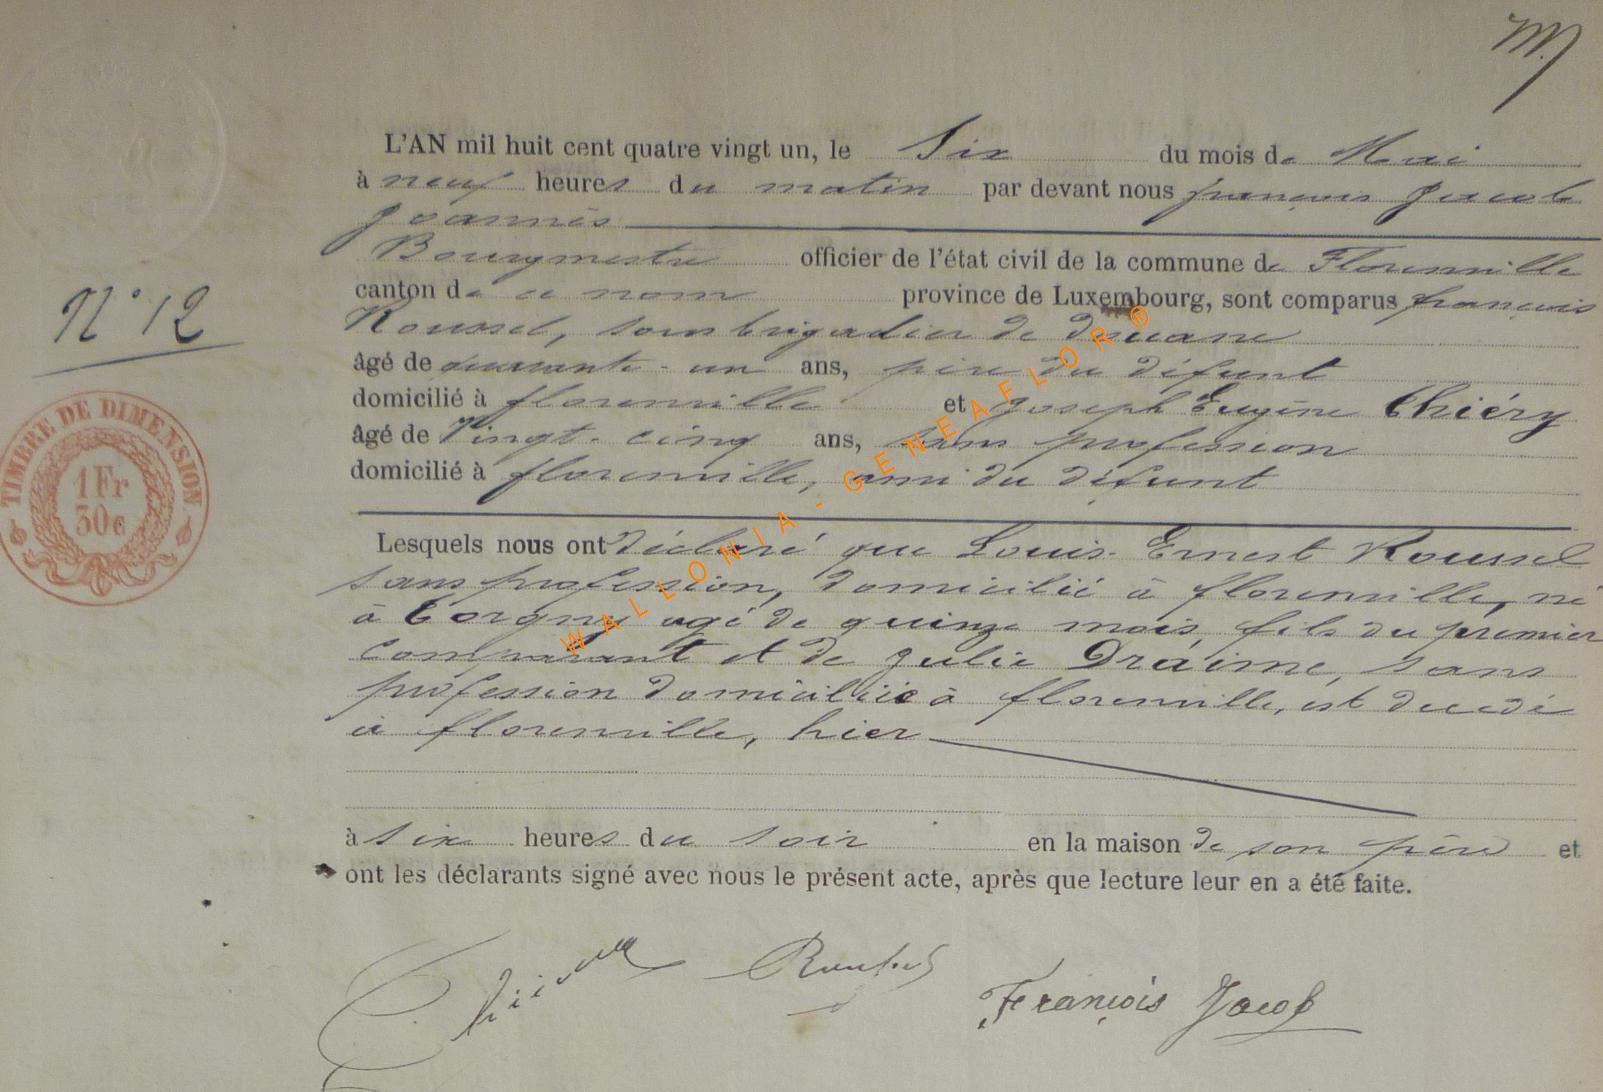 L'AN mil huit cent quatre vingt un, le Six du mois de Mai
à neuf heures du matin par devant nous françois Jacob
Joannès
Bourgmestre officier de l'état civil de la commune de Florenville
canton de ce nom province de Luxembourg, sont comparus françois
N° 12
Roussel, sous brigadier de douane
âgé de quarante-un ans, père du défunt
domicilié à florenville et Joseph Eugène Thiéry
âgé de Vingt-cinq ans, sans profession
domicilié à florenville, ami du défunt
TIMBRE DE DIMENSION
1 Fr
30c
WALLONIA-GENEAFLOR®
Lesquels nous ont déclaré que Louis-Ernest Roussel
sans profession, domicilié à florenville, né
à Torgny agé de quinze mois, fils du premier
Comparant et de Julie Draime, sans
profession domiciliée à florenville, est décédé
à florenville, hier
à six heures du soir en la maison de son père et
ont les déclarants signé avec nous le présent acte, après que lecture leur en a été faite.
François Jacob